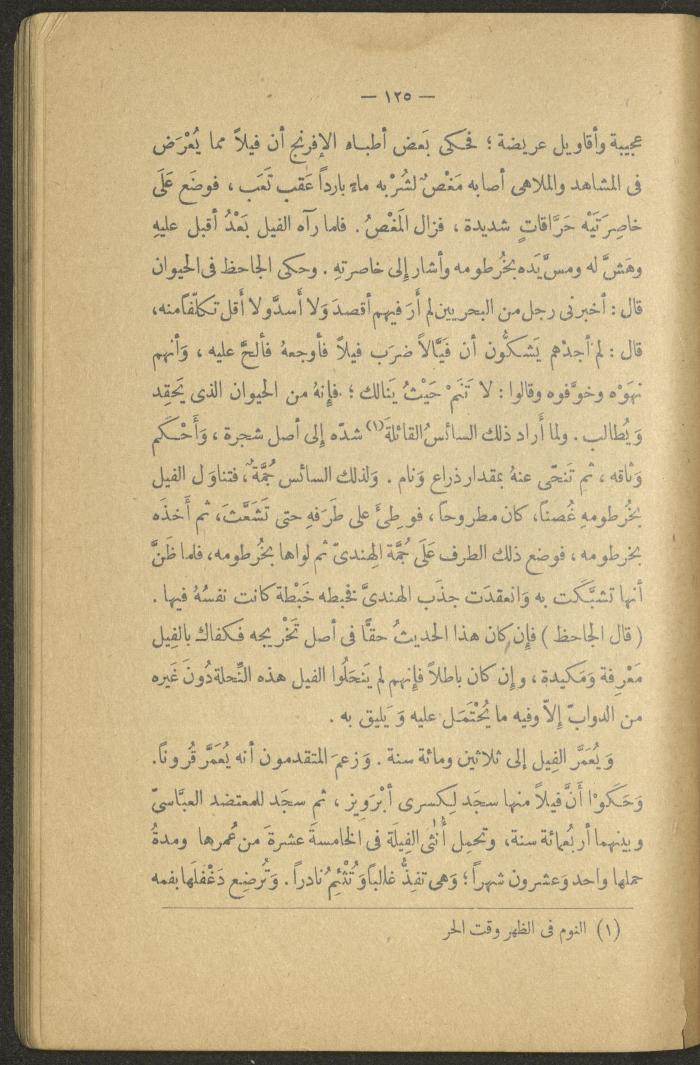 — ١٢٥ —
عجيبة وأقاويل عريضة ؛ فحكى بَعض أطباء الإفرنج أن فيلاً مما يُعْرَض
فى المشاهد والملاهى أصابه مَغْصٌ لشُرْبه ماء بارداً عَقب تَعَب ، فوضَع عَلَى
خاصِرَتَيْه حَرَّاقاتٍ شديدة ، فزال المَغْصُ . فلما رآه الفيل بَعْدُ أقبل عليهِ
وهَشَّ له ومسَّ يَده بخُرطومه وأشار إلى خاصرتهِ . وحكى الجاحظ فى الحيوان
قال : أخبرنى رجل من البحريين لم أَرَ فيهم أقصدَ وَلا أَسدَّ ولا أَقل تكلّفاً منه،
قال : لم أجدْهم يَشكّون أن فَيَّالاً ضرَب فيلاً فأوجعهُ فألحَّ عليه ، وَأنهم
نهَوْه وخوَّفوه وقالوا : لا تَنَمْ حَيْثُ ينالك ؛ فإِنهُ من الحيوان الذى يَحقِد
وَيُطالب . ولما أَراد ذلك السائسُ القائلةَ(١) شدّه إلى أصل شجرة ، وَأَحْكَم
وَثاقه ، ثم تَنحّى عنهُ بمقدار ذراع وَنام . وَلذلك السائس جُمَّةٌ، فتناوَل الفيل
بخُرطومهِ غُصناً، كان مطروحاً ، فوطِئَ على طَرَفهِ حتى تَشَعَّثَ، ثم أخذه
بخرطومه ، فوضع ذلك الطرف عَلَى جُمَّة الهِندىّ ثم لواها بخُرطومه، فلما ظَنَّ
أنها تشبَّكت به وَانعقدَت جذَب الهندىَّ فخبطه خَبْطة كانت نفسُهُ فيها .
( قال الجاحظ ) فإِن كان هذا الحديثُ حقًّا فى أصل تَخْريجه فكفاك بالفِيل
مَعْرفة وَمَكيدة ، وإن كان باطلاً فإِنهم لم يَنحَلُوا الفيل هذه النِّحلة دُونَ غَيره
من الدوابّ إلاّ وفيه ما يُحْتَمَل عليه وَيَليق به .
وَيُعَمَّر الفِيل إلى ثلاثين ومائة سنة . وَزعمَ المتقدمون أنه يُعَمَّر قُروناً.
وَحَكَوْا أَنَّ فيلاً منها سجَد لِكسرى أبْرَويز ، ثم سجَد للمعتضد العبَّاسىّ
وبينهما أربُعمائة سنة، وتحمِل أُنثى الفِيلَة فى الخامسةَ عشرةَ من عُمرها ومدةُ
حملها واحد وَعشرون شهراً ؛ وَهى تفِذُّ غالباً وَتُتْئِمُ نادراً . وَتُرضِع دَغْفَلَها بفمه
(١) النوم فى الظهر وقت الحر